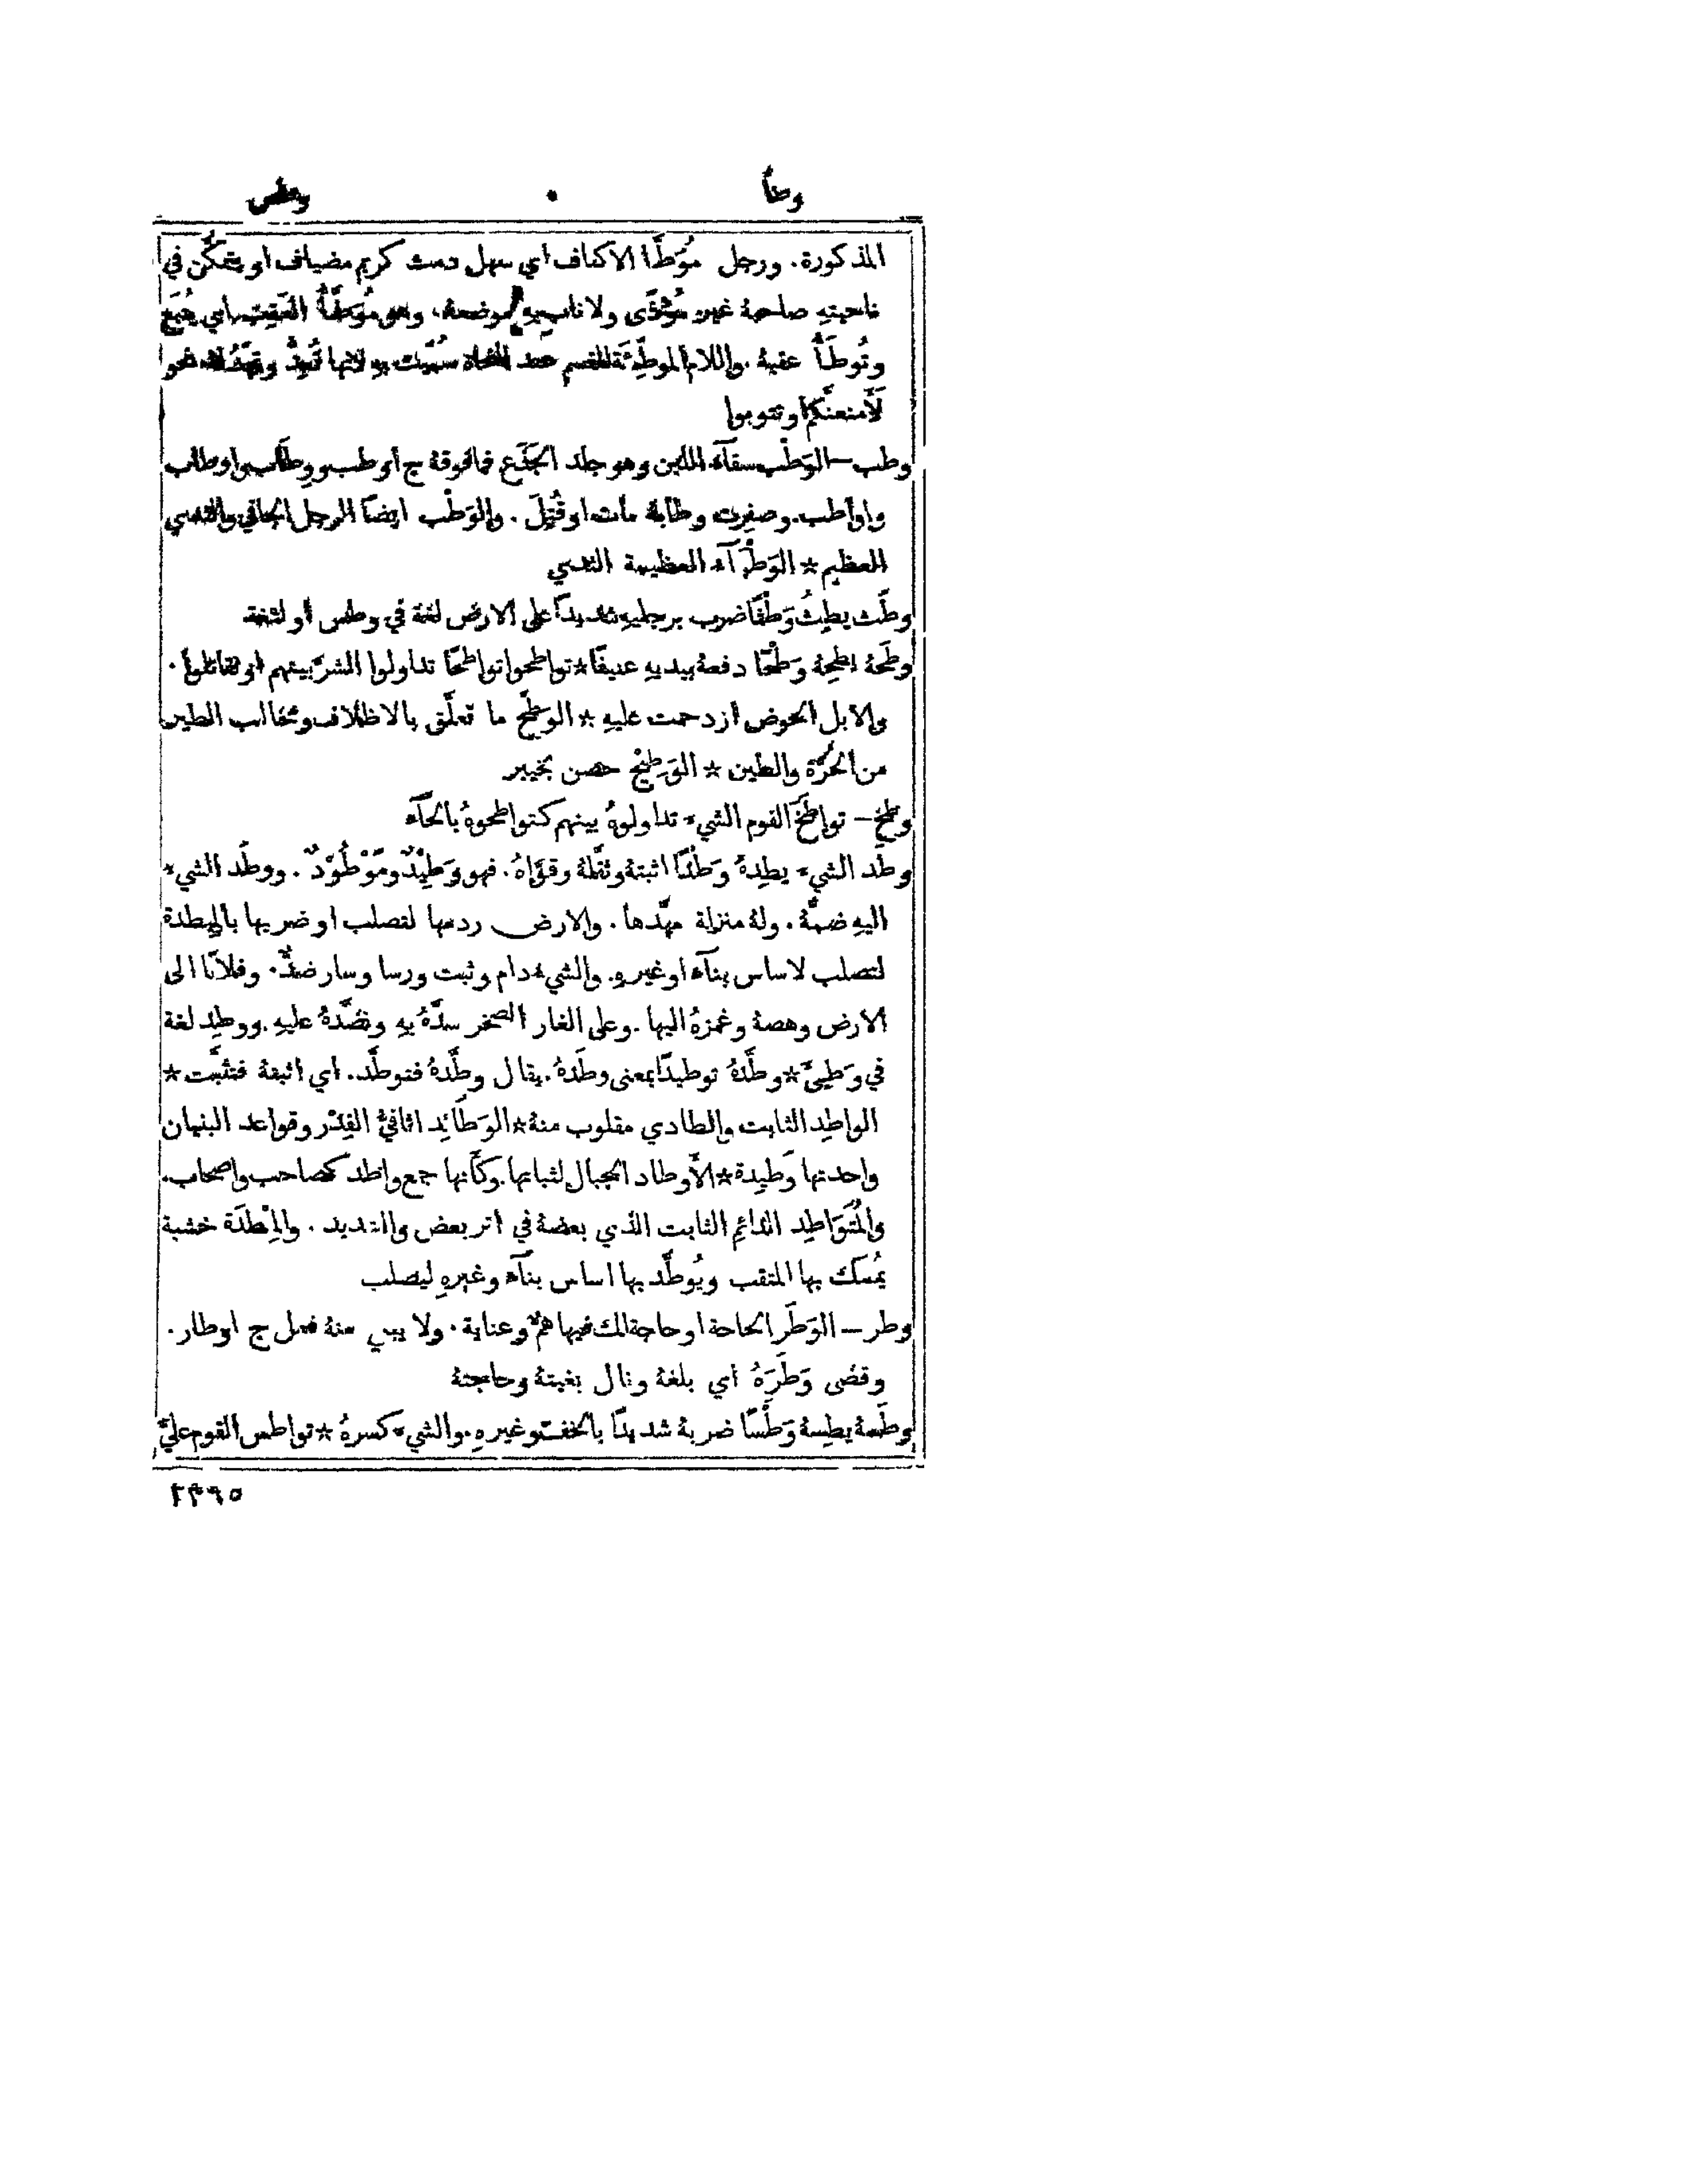 وطأ
وطس
المذكورة. ورجل مُوَطَّأ الاكناف اي سهل دمث كريم مضياف او يتمكَّن في
ناحيتهِ صاحبهُ غير مُوْذًى ولا نابٍ بهِ موضعهُ. وهو مُوَطَّأُ العَقِب اي يُتبَع
وتُوطَأُ عقبهُ. واللام الموطِّئَة للقسم عند النحاة سُمّيَت بهِ لانها لهُ نحو
لَأَمنعنَّكم او تتوبوا
وطب — الوَطْب سقآء اللبن وهو جلد الجَذَع فما فوقهُ ج اوطب ووِطَاب واوطاب
واواطب. وصفرت وطابهُ مات او قُتِلَ. والوَطْب ايضًا الرجل الجافي والثدي
العظيم * الوَطْبَآء العظيمة الثدي
وطَث يطِثُ وَطْثًا ضرب برجليهِ شديدًا على الارض لغة في وطس او لثغة
وطَحهُ يطِحهُ وَطْحًا دفعهُ بيديهِ عنيفًا * تواطحوا تواطحًا تداولوا الشرَّ بينهم او تقاتلوا.
والابل الحوض ازدحمت عليهِ * الوَطَح ما تعلَّق بالاظلاف ومخالب الطير
من العُرَّة والطين * الوَطِيْح حصن بخيبر
وطخ — تواطَخَ القوم الشيء تداولوهُ بينهم كتواطحوهُ بالحآء
وطَد الشيء يطِدهُ وَطْدًا اثبتهُ وثقَّلهُ وقوَّاهُ. فهو وَطِيْدٌ ومَوْطُوْدٌ. ووطَد الشيء
اليهِ ضمَّهُ. ولهُ منزلة مهَّدها. والارض ردمها لتصلب او ضربها بالميطدة
لتصلب لاساس بنآء او غيرهِ. والشيء دام وثبت ورسا وسار ضدٌّ. وفلانًا الى
الارض وهصهُ وغمزهُ اليها. وعلى الغار الصخر سدَّهُ بهِ ونضَّدهُ عليهِ. ووطِد لغة
في وَطِئَ * وطَّدهُ توطيدًا بمعنى وطَدَهُ. يقال وطَّدهُ فتوطَّد. اي اثبتهُ فتثبَّت *
الواطِد الثابت والطادي مقلوب منهُ * الوَطَائِد اثافيُّ القِدْر وقواعد البنيان
واحدتها وَطِيدة * الأَوطاد الجبال لثباتها. وكأَنها جمع واطد كصاحب واصحاب.
والمُتَوَاطِد الدائم الثابت الذي بعضهُ في اثر بعض والشديد. والمِيْطَدَة خشبة
يُمسَك بها المثقب ويُوطَّد بها اساس بنآء وغيرهِ ليصلب
وطر — الوَطَر الحاجة او حاجة لك فيها همٌّ وعناية. ولا يبنى منهُ فعل ج اوطار.
وقضى وَطَرَهُ اي بلغهُ ونال بغيتهُ وحاجتهُ
وطَسهُ يطِسهُ وَطْسًا ضربهُ شديدًا بالخف وغيرهِ. والشيء كسرهُ * تواطس القوم عليَّ
٢٣٩٥